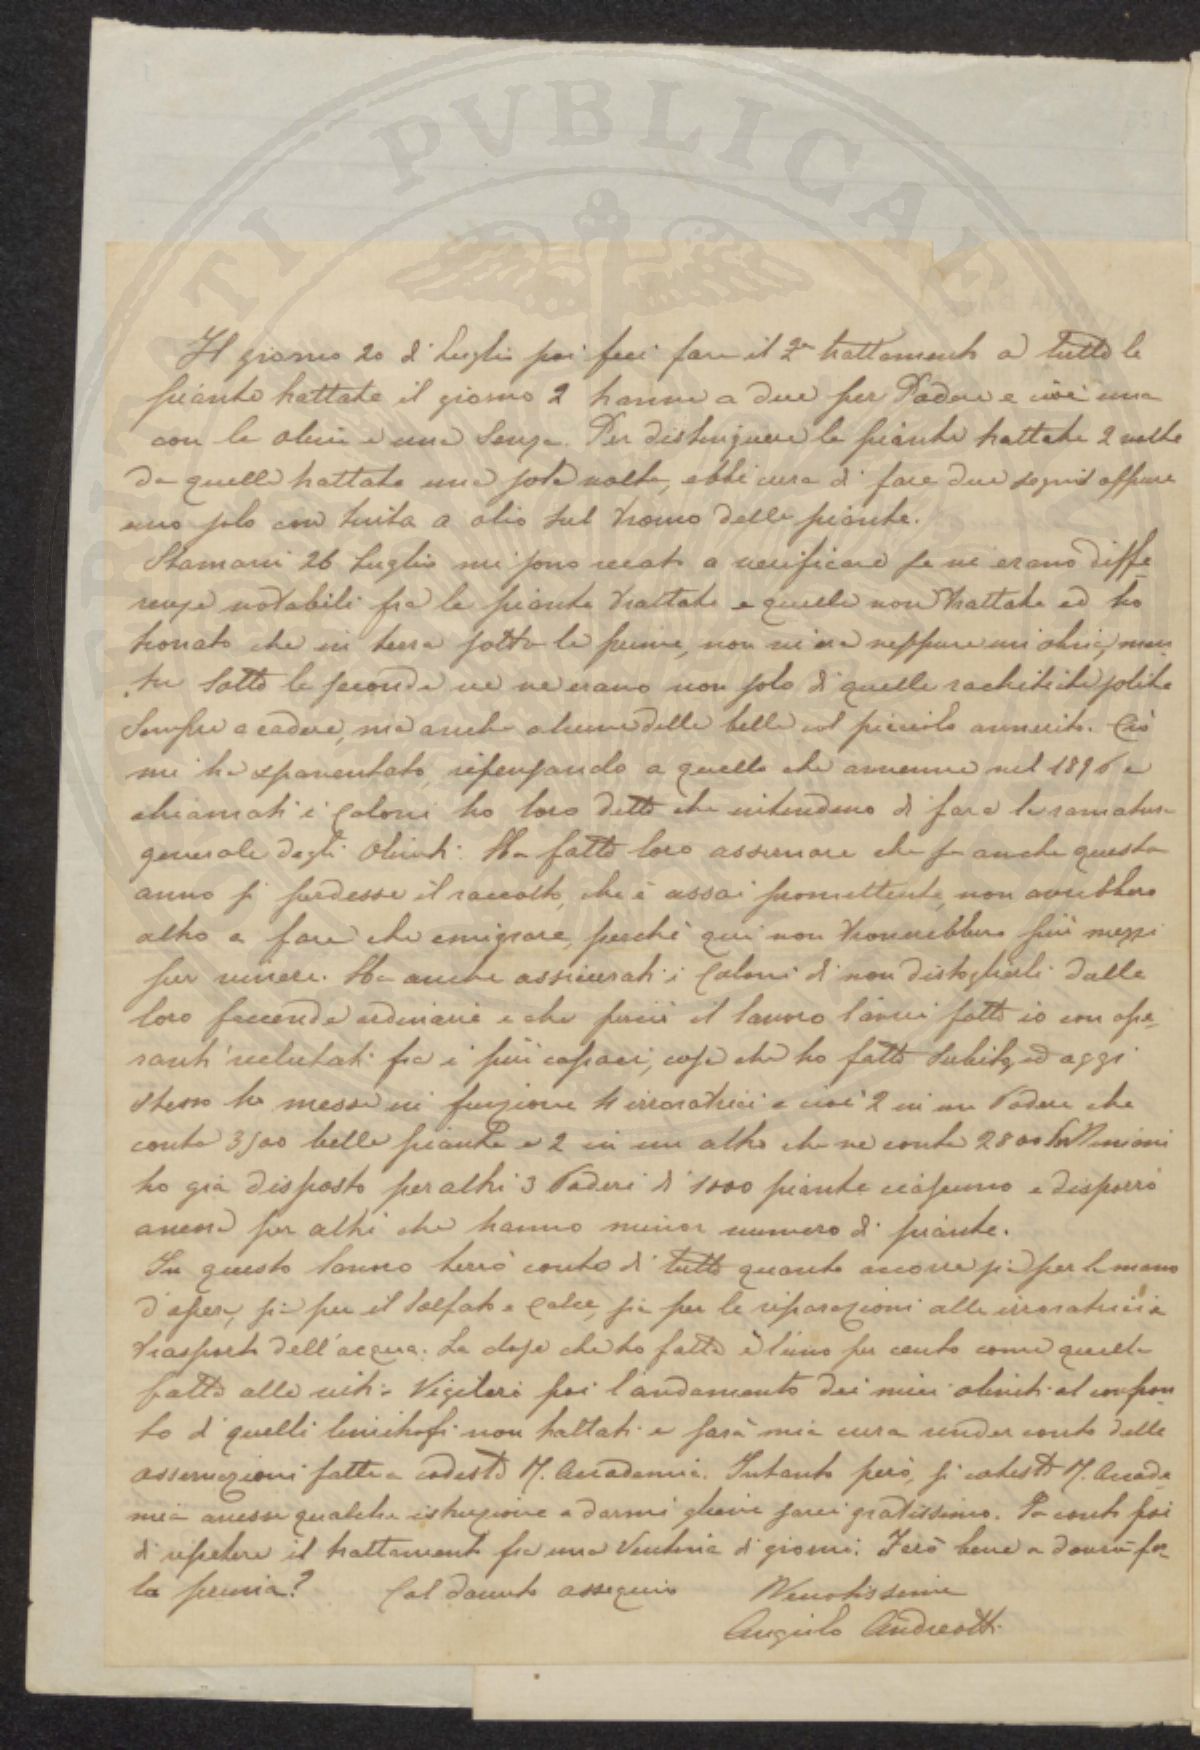 PRIVATI PVBLICAE
Il giorno 20 di Luglio poi feci fare il 2° trattamento a tutte le
piante trattate il giorno 2 hanno a due per Podere e cioè una
con le olive e una senza. Per distinguere le piante trattate 2 volte
da quelle trattate una sola volta, ebbi cura di fare due segni oppure
uno solo con tinta a olio sul tronco delle piante.
Stamani 26 Luglio mi sono recato a verificare se vi erano diffe-
renze notabili fra le piante trattate e quelle non trattate ed ho
trovato che in terra sotto le prime, non vi era neppure un oliva, men
tre sotto le seconde ve ne erano non solo di quelle rachitiche solite
sempre a cadere, ma anche alcune delle belle col picciolo annerito. Ciò
mi ha spaventato, ripensando a quello che avvenne nel 1896 e
chiamati i Coloni ho loro detto che intendevo di fare la ramatura
generale degli Oliveti. Ho fatto loro osservare che se anche questo
anno si perdesse il raccolto, che è assai promettente, non avrebbero
altro a fare che emigrare, perchè qui non troverebbero più mezzi
per vivere. Ho anche assicurati i Coloni di non distoglierli dalle
loro faccende ordinarie e che perciò il lavoro l'avrei fatto io con ope-
ranti reclutati fra i più capaci, cosa che ho fatto subito, ed oggi
stesso ho messe in funzione 4 irroratrici e cioè 2 in un Podere che
conta 3500 belle piante e 2 in un altro che ne conta 2800
ho già disposto per altri 3 Poderi di 1000 piante ciascuno e disporrò
ancora per altri che hanno minor numero di piante.
In questo lavoro terrò conto di tutto quanto occorre sia per la mano
d'opera, sia per il Solfato e Calce, sia per le riparazioni alle irroratrici e
trasporto dell'acqua. La dose che ho fatta è l'uno per cento come quella
fatta alle viti. Vigilerò poi l'andamento dei miei oliveti al confron
to di quelli limitrofi non trattati e sarà mia cura render conto delle
osservazioni fatte a codesta R. Accademia. Intanto però, se codesta R. Accade-
mia avesse qualche istruzione a darmi gliene sarei gratissimo. Fo conto poi
di ripetere il trattamento fra una ventina di giorni. Farò bene o dovrò far-
lo prima? Col dovuto ossequio Devotissimo
Angiolo Andreotti